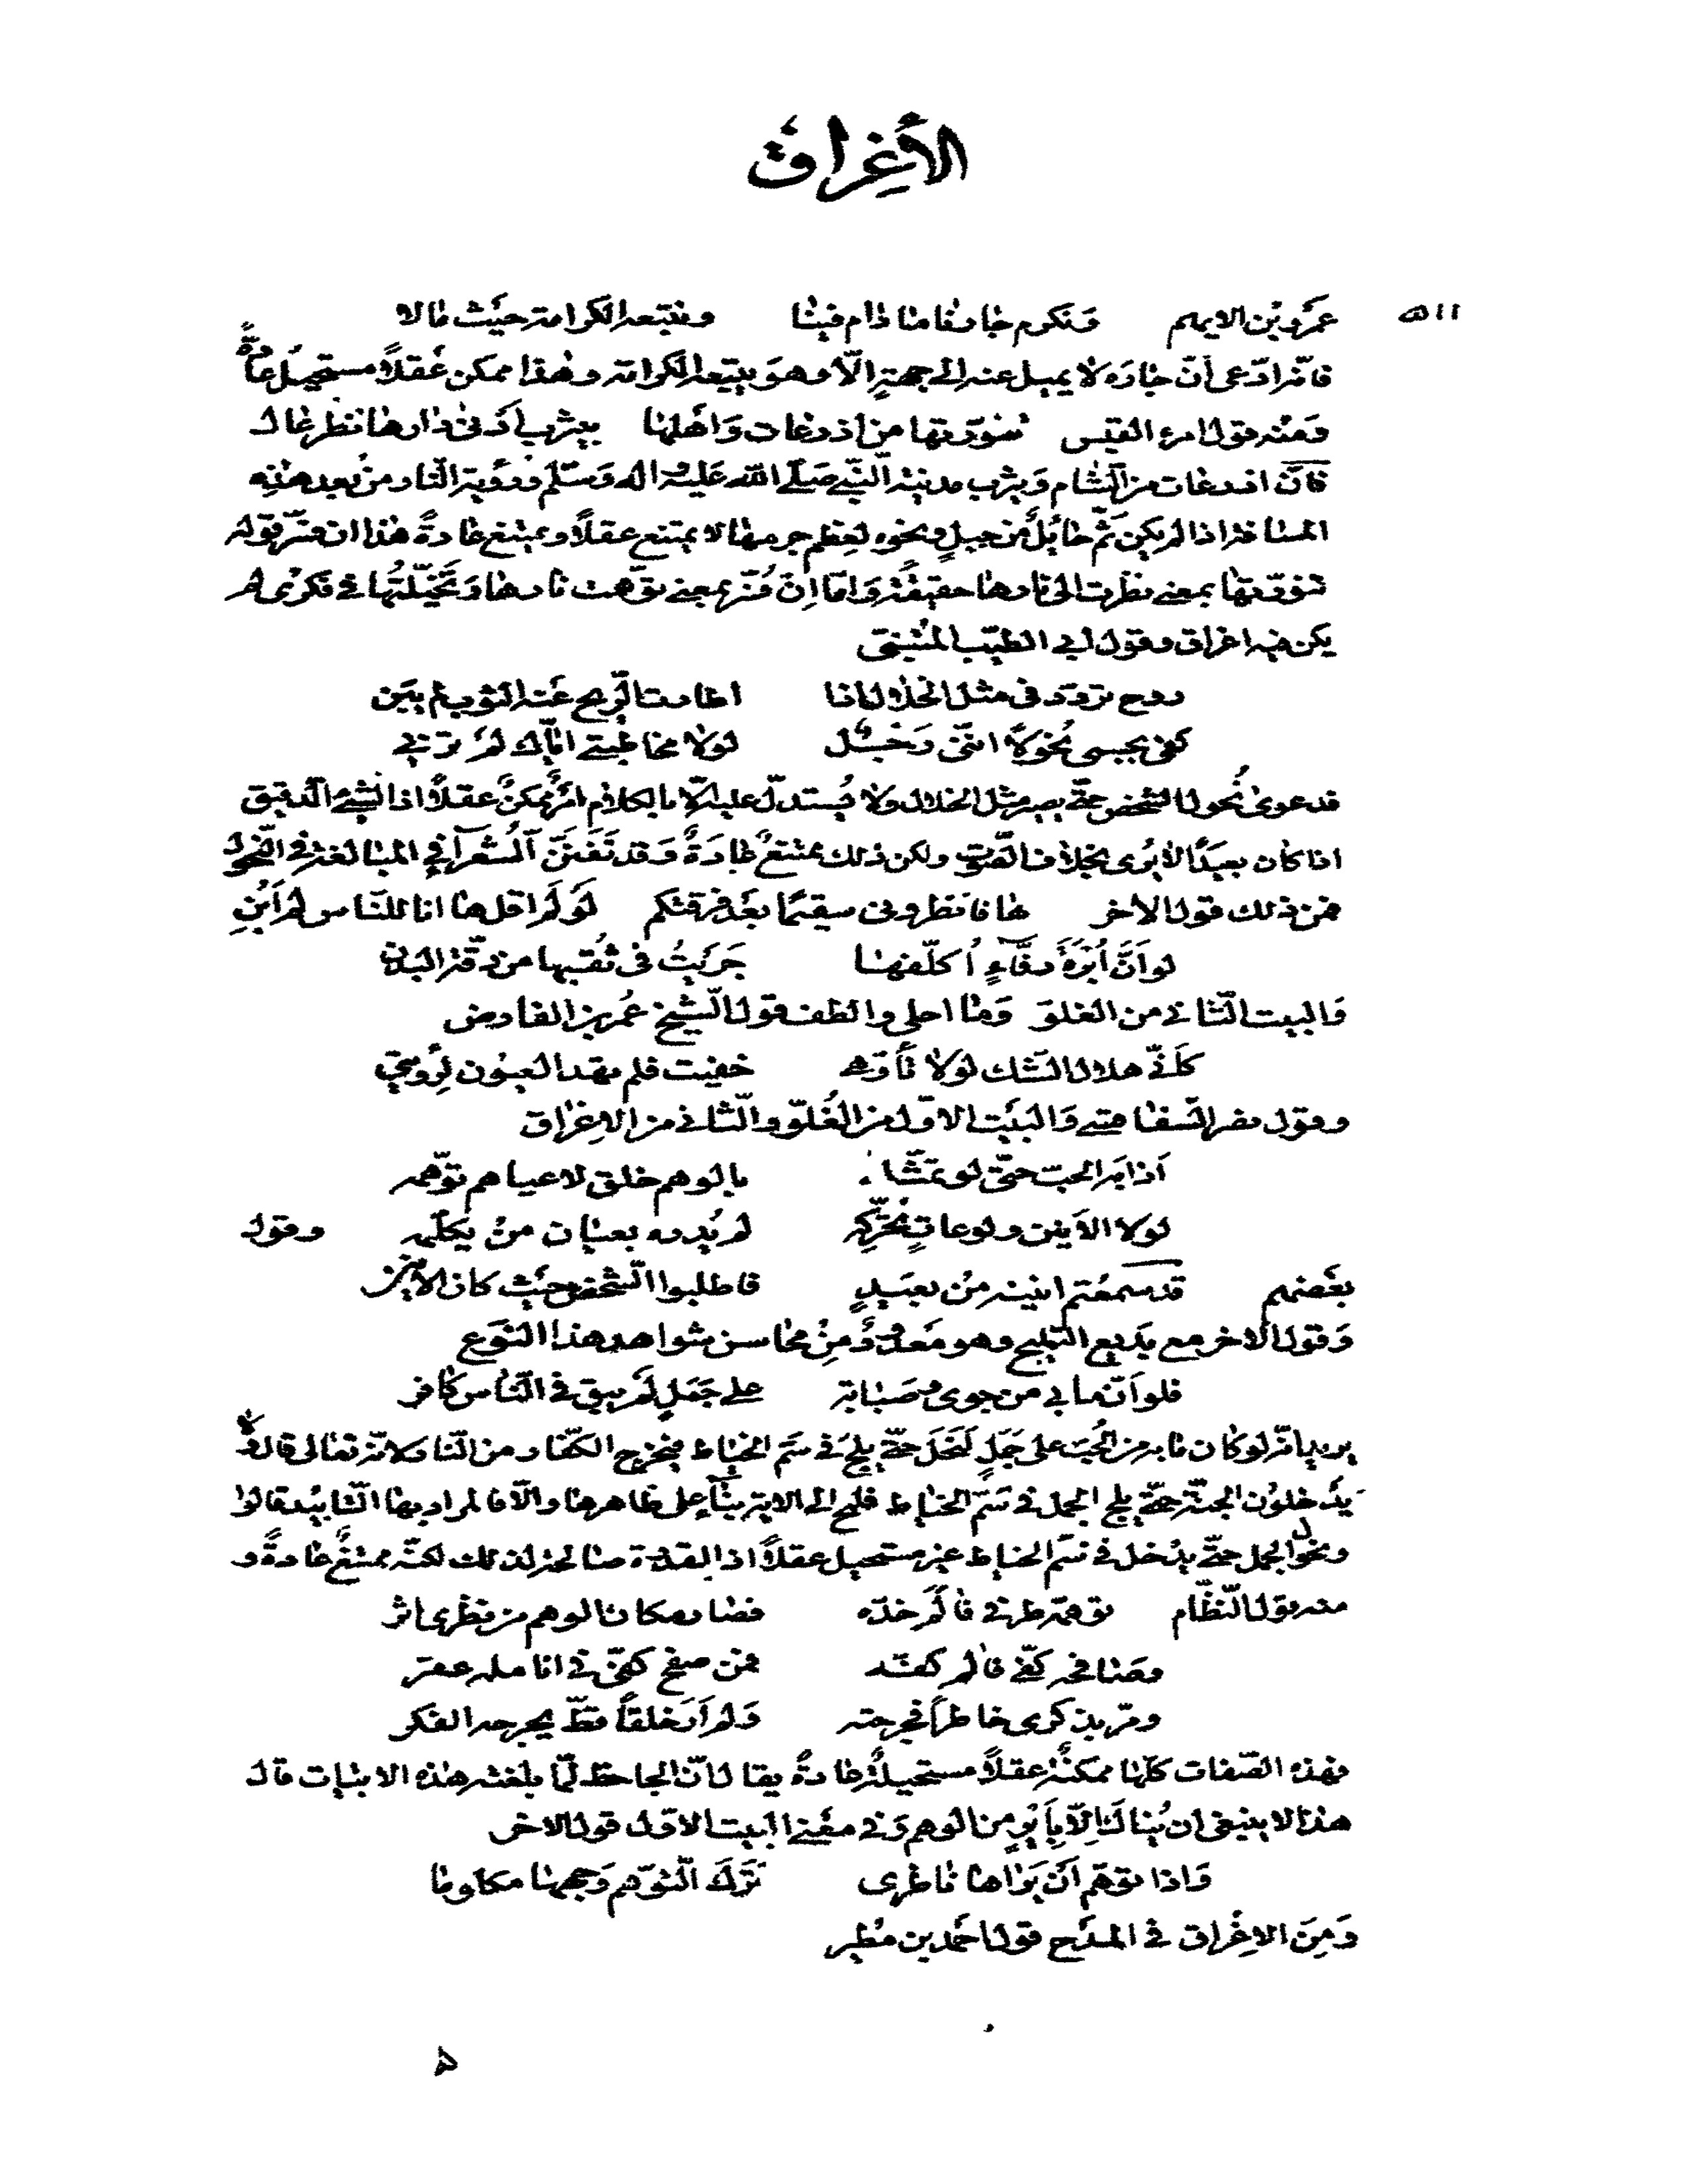 الأغراق
عمرو بن الايهم ونكرم جارنا مادام فينا ونتبعه الكرامة حيث مالا
فانه ادعى أنّ جاره لا يميل عنه الى جهةٍ الّا وهو يتبعه الكرامة وهذا ممكن عقلاً مستحيل عادةً
ومنه قول امرء القيس تنورتها من اذرعات واهلها بيثرب أدنى دارها نظر عال
فانّ اذرعات من الشام ويثرب مدينة النّبي صلّى الله عليه وآله وسلّم ورؤية النار من بعد هذه
المسافة اذا لم يكن ثَمّ حائلٌ من جبلٍ ونحوه لعظم جرمها لا يمتنع عقلاً ويمتنع عادةً هذا ان فسّر قوله
تنورتها بمعنى نظرت الى نارها حقيقةً وامّا إن فُسّر بمعنى توهمت نارها وتخيّلتُها في فكرى لم
يكن فيه اغراق وقول ابي الطيّب المتنبّي
روح تردد في مثل الخلال اذا اطارت الرّيح عنه الثوب لم يبن
كفى بجسمى نُحولاً انّنى رجل لولا مخاطبتي ايّاك لم ترني
فدعوى نُحول الشخص حتّى يصير مثل الخلال ولا يُستدلّ عليه الّا بالكلام امرٌ ممكنٌ عقلاً اذ الشيء الدقيق
اذا كان بعيدًا لا يُرى بخلاف الصّوت ولكن ذلك ممتنعٌ عادةً وقد تفنّن الشعرآء في المبالغة في النّحول
فمن ذلك قول الاخر ها فانظرونى سقيمًا بعد فرقتكم لو لم اقل ها انا للنّاس لم أبنِ
لو أنّ إبرة رفّاءٍ أكلّفها جريتُ في ثُقبها من دقّة البدن
والبيت الثّاني من الغلوّ وما احلى والطف قول الشّيخ عُمر بن الفارض
كأنّي هلال الشّك لولا تأوّهى خفيت فلم تهد العيون لرؤيتي
والبيت الاوّل من الغُلوّ والثّاني من الاغراق
اذابه الحبّ حتّى لو تمثّله بالوهم خلق لاعياهم توهّمه
لولا الأنين ولوعاتٍ تُحرّكه لم يُدره بعيان منْ يكلّمه وقول
بعضهم قد سمعتم انينه من بعيدٍ فاطلبوا الشّخص حيث كان الانين
وقول الاخر مع بديع التلميح وهو معدودٌ من محاسن شواهد هذا النّوع
فلو أنّ ما بي من جوى وصبابة على جملٍ لم يبق في النّاس كافر
يريد انّه لو كان ما به من الحُبّ على جملٍ لنحل حتّى يلج في سمّ الخياط فيخرج الكفّار من النّار لانّه تعالى قال ولا
يدخلون الجنّة حتّى يلج الجمل في سَمّ الخياط فلمح الى الاية بناءً على ظاهرها والّا فالمراد بها التّابيد قالوا
ونحول الجمل حتّى يدخل في سمّ الخياط غير مستحيل عقلاً اذ القدرة صالحة لذلك لكنّه ممتنعٌ عادةً و
منه قول النّظّام توهمه طرفي فآلم خدّه فصار مكان الوهم من نظرى اثر
وصافحه كفّي فآلم كفّه فمن صفح كفّى في انامله عقر
ومرّ بذكرى خاطراً فجرحته ولم أر خلقاً قطّ يجرحه الفكر
فهذه الصّفات كلّها ممكنةٌ عقلاً مستحيلةٌ عادةً يقال انّ الجاحظ لمّا بلغته هذه الابيات قال
هذا لا ينبغى ان يُنال الّا بأيرٍ من الوهم وفي معنى البيت الاوّل قول الاخر
واذا توهّم أن يراها ناظرى ترك التّوهّم وجهها مكلوما
ومن الاغراق في المدح قول احمد بن مُطير